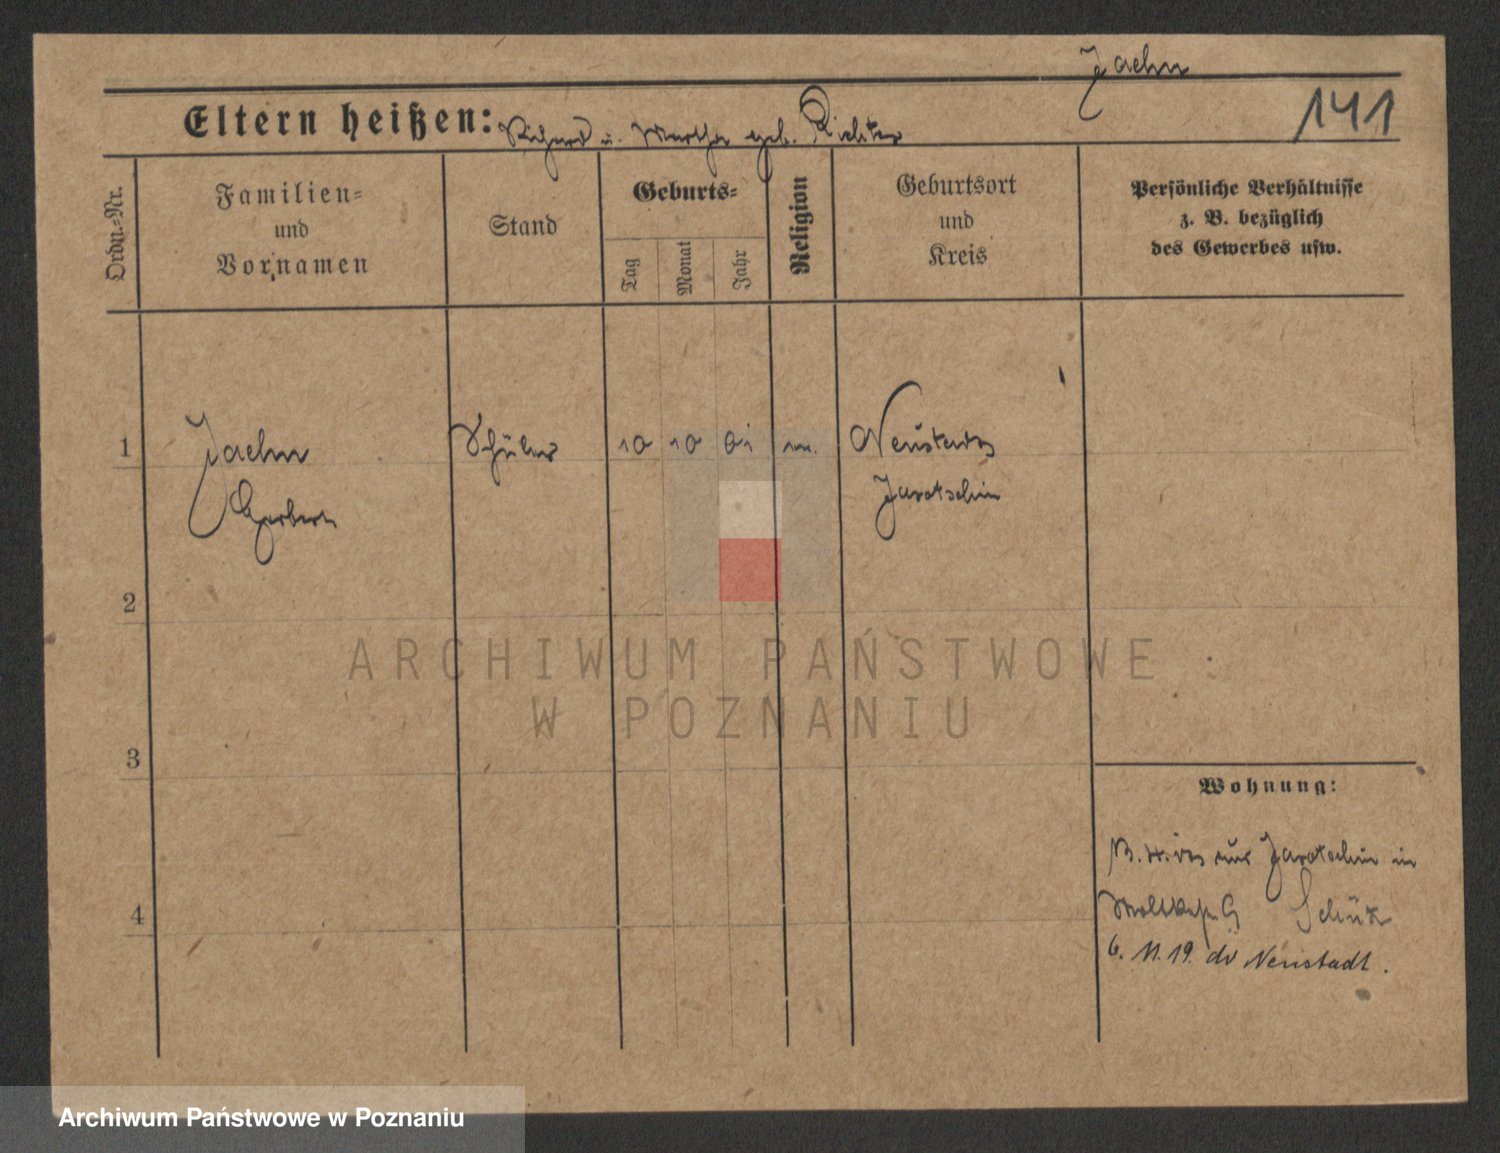 Jaehn
141
Eltern heißen: Richard u. Martha geb. Richter
Ordn.-Nr.
Familien-
und
Vornamen
Stand
Geburts-
Tag
Monat
Jahr
Religion
Geburtsort
und
Kreis
Persönliche Verhältnisse
z. B. bezüglich
des Gewerbes usw.
1
Jaehn
Herbert
Schüler
10
10
01
Neustadt
Jarotschin
2
3
4
ARCHIWUM PAŃSTWOWE
W POZNANIU
Wohnung:
aus Jarotschin in
Schütz
6. 11. 19. do Neustadt.
Archiwum Państwowe w Poznaniu